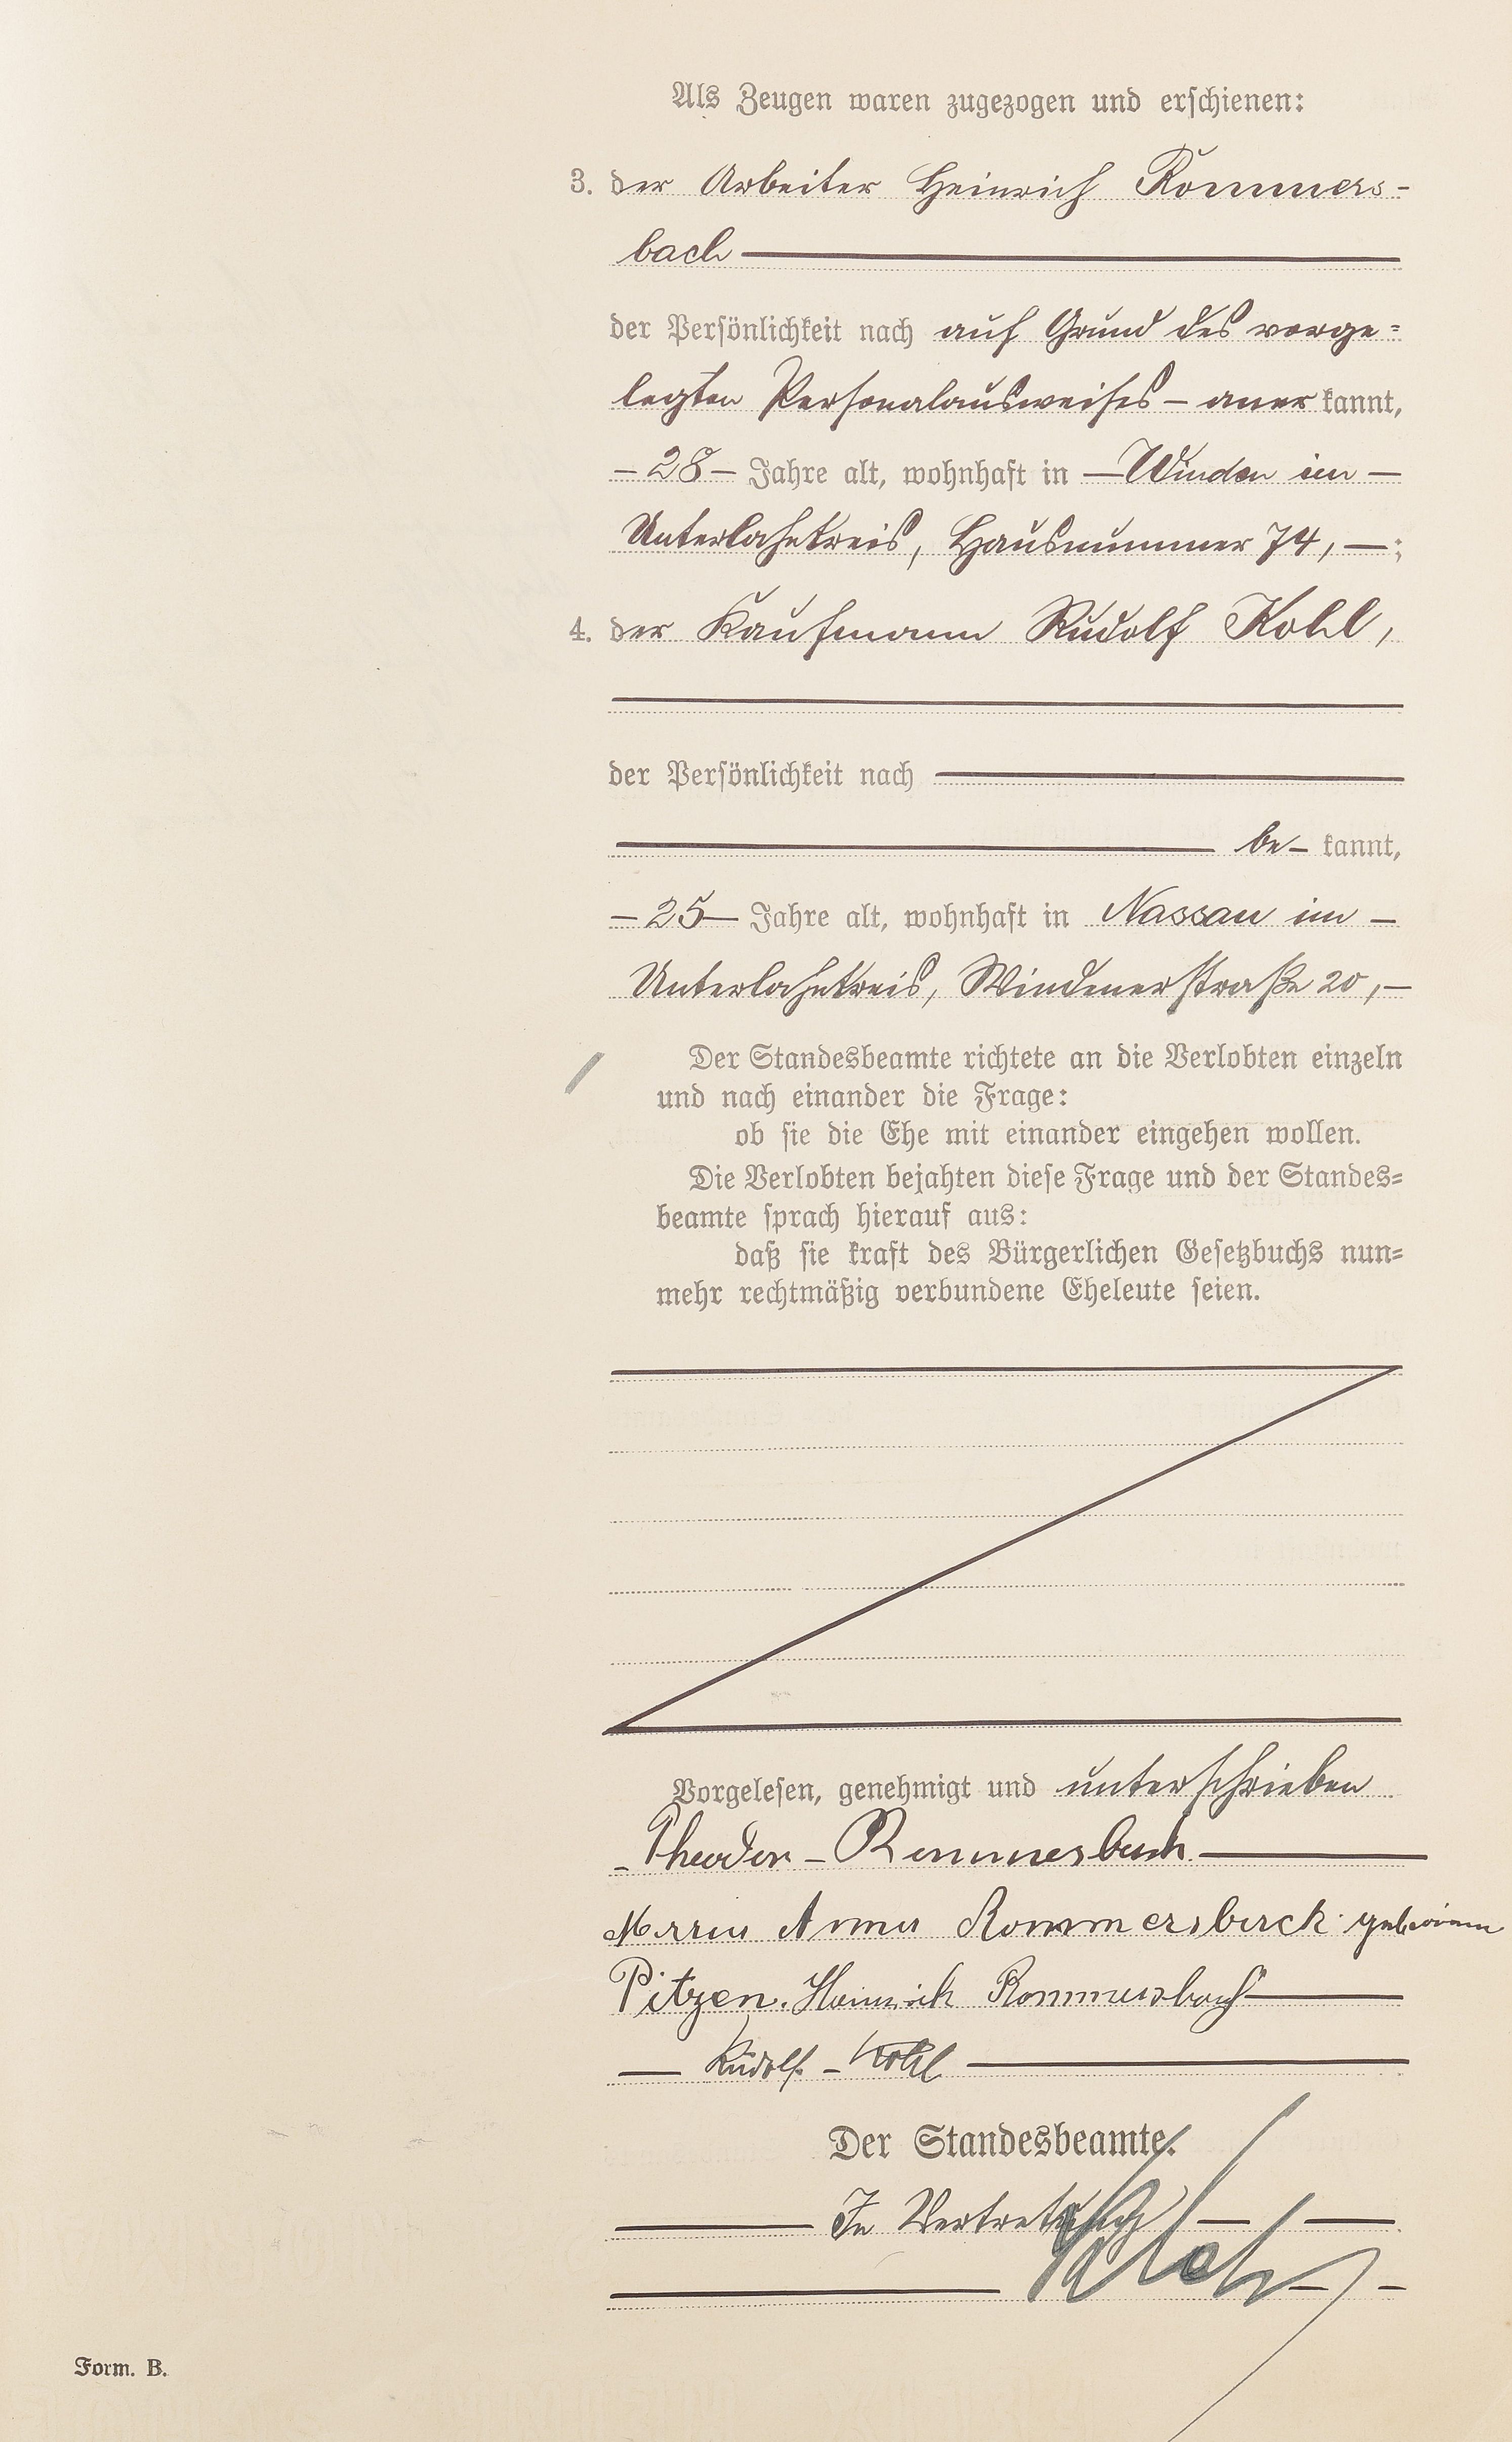 Als Zeugen waren zugezogen und erschienen:
3. der Arbeiter Heinrich Rommers-
bach
der Persönlichkeit nach auf Grund des vorge-
legten Personalausweises - anerkannt,
- 28 - Jahre alt, wohnhaft in - Winden im -
Unterlahnkreis, Hausnummer 74, - ;
4. der Kaufmann Rudolf Kohl,
der Persönlichkeit nach
be- kannt,
- 25 - Jahre alt, wohnhaft in Nassau im -
Unterlahnkreis, Windenerstraße 20, -
Der Standesbeamte richtete an die Verlobten einzeln
und nach einander die Frage:
ob sie die Ehe mit einander eingehen wollen.
Die Verlobten bejahten diese Frage und der Standes-
beamte sprach hierauf aus:
daß sie kraft des Bürgerlichen Gesetzbuchs nun-
mehr rechtmäßig verbundene Eheleute seien.
Vorgelesen, genehmigt und unterschrieben
- Theodor - Rommersbach
Maria Anna Rommersbach geborene
Pitzen. Heinrich Rommersbach
Rudolf - Kohl
Der Standesbeamte.
In Vertretung
Form. B.